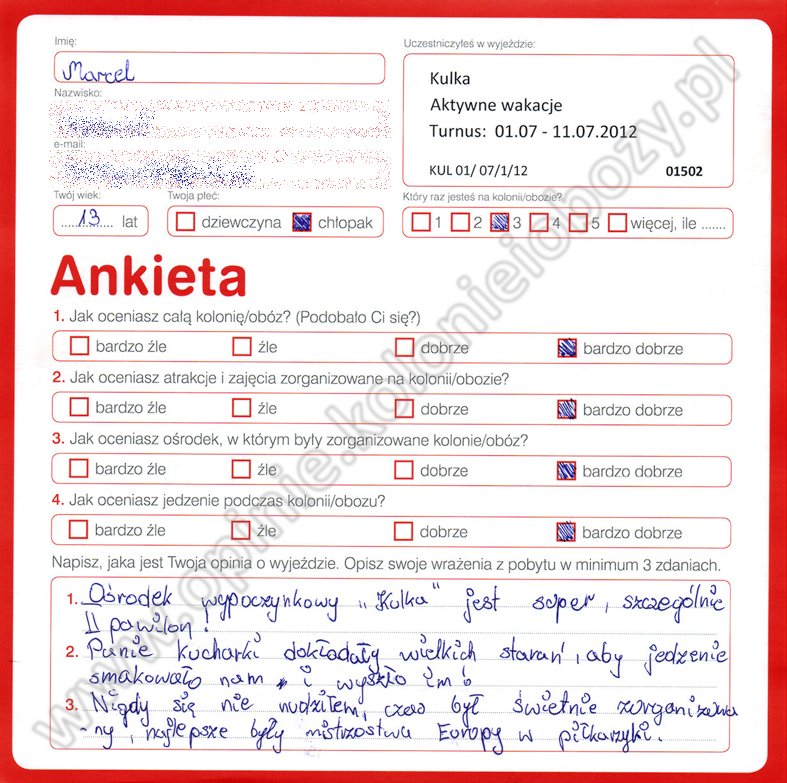 Imię:
Marcel
Nazwisko:
e-mail:
Uczestniczyłeś w wyjeździe:
Kulka
Aktywne wakacje
Turnus: 01.07 - 11.07.2012
KUL 01/ 07/1/12 01502
Twój wiek:
13 lat
Twoja płeć:
dziewczyna chłopak
Który raz jesteś na kolonii/obozie?
1 2 3 4 5 więcej, ile .......
Ankieta
1. Jak oceniasz całą kolonię/obóz? (Podobało Ci się?)
bardzo źle źle dobrze bardzo dobrze
2. Jak oceniasz atrakcje i zajęcia zorganizowane na kolonii/obozie?
bardzo źle źle dobrze bardzo dobrze
3. Jak oceniasz ośrodek, w którym były zorganizowane kolonie/obóz?
bardzo źle źle dobrze bardzo dobrze
4. Jak oceniasz jedzenie podczas kolonii/obozu?
bardzo źle źle dobrze bardzo dobrze
Napisz, jaka jest Twoja opinia o wyjeździe. Opisz swoje wrażenia z pobytu w minimum 3 zdaniach.
1. Ośrodek wypoczynkowy "Kulka" jest super, szczególnie
II pawilon!
2. Panie kucharki dokładały wielkich starań, aby jedzenie
smakowało nam, i wyszło im!
3. Nigdy się nie nudziłem, czas był świetnie zorganizowa
-ny, najlepsze były mistrzostwa Europy w piłkarzyki.
www.opinie.kolonieiobozy.pl